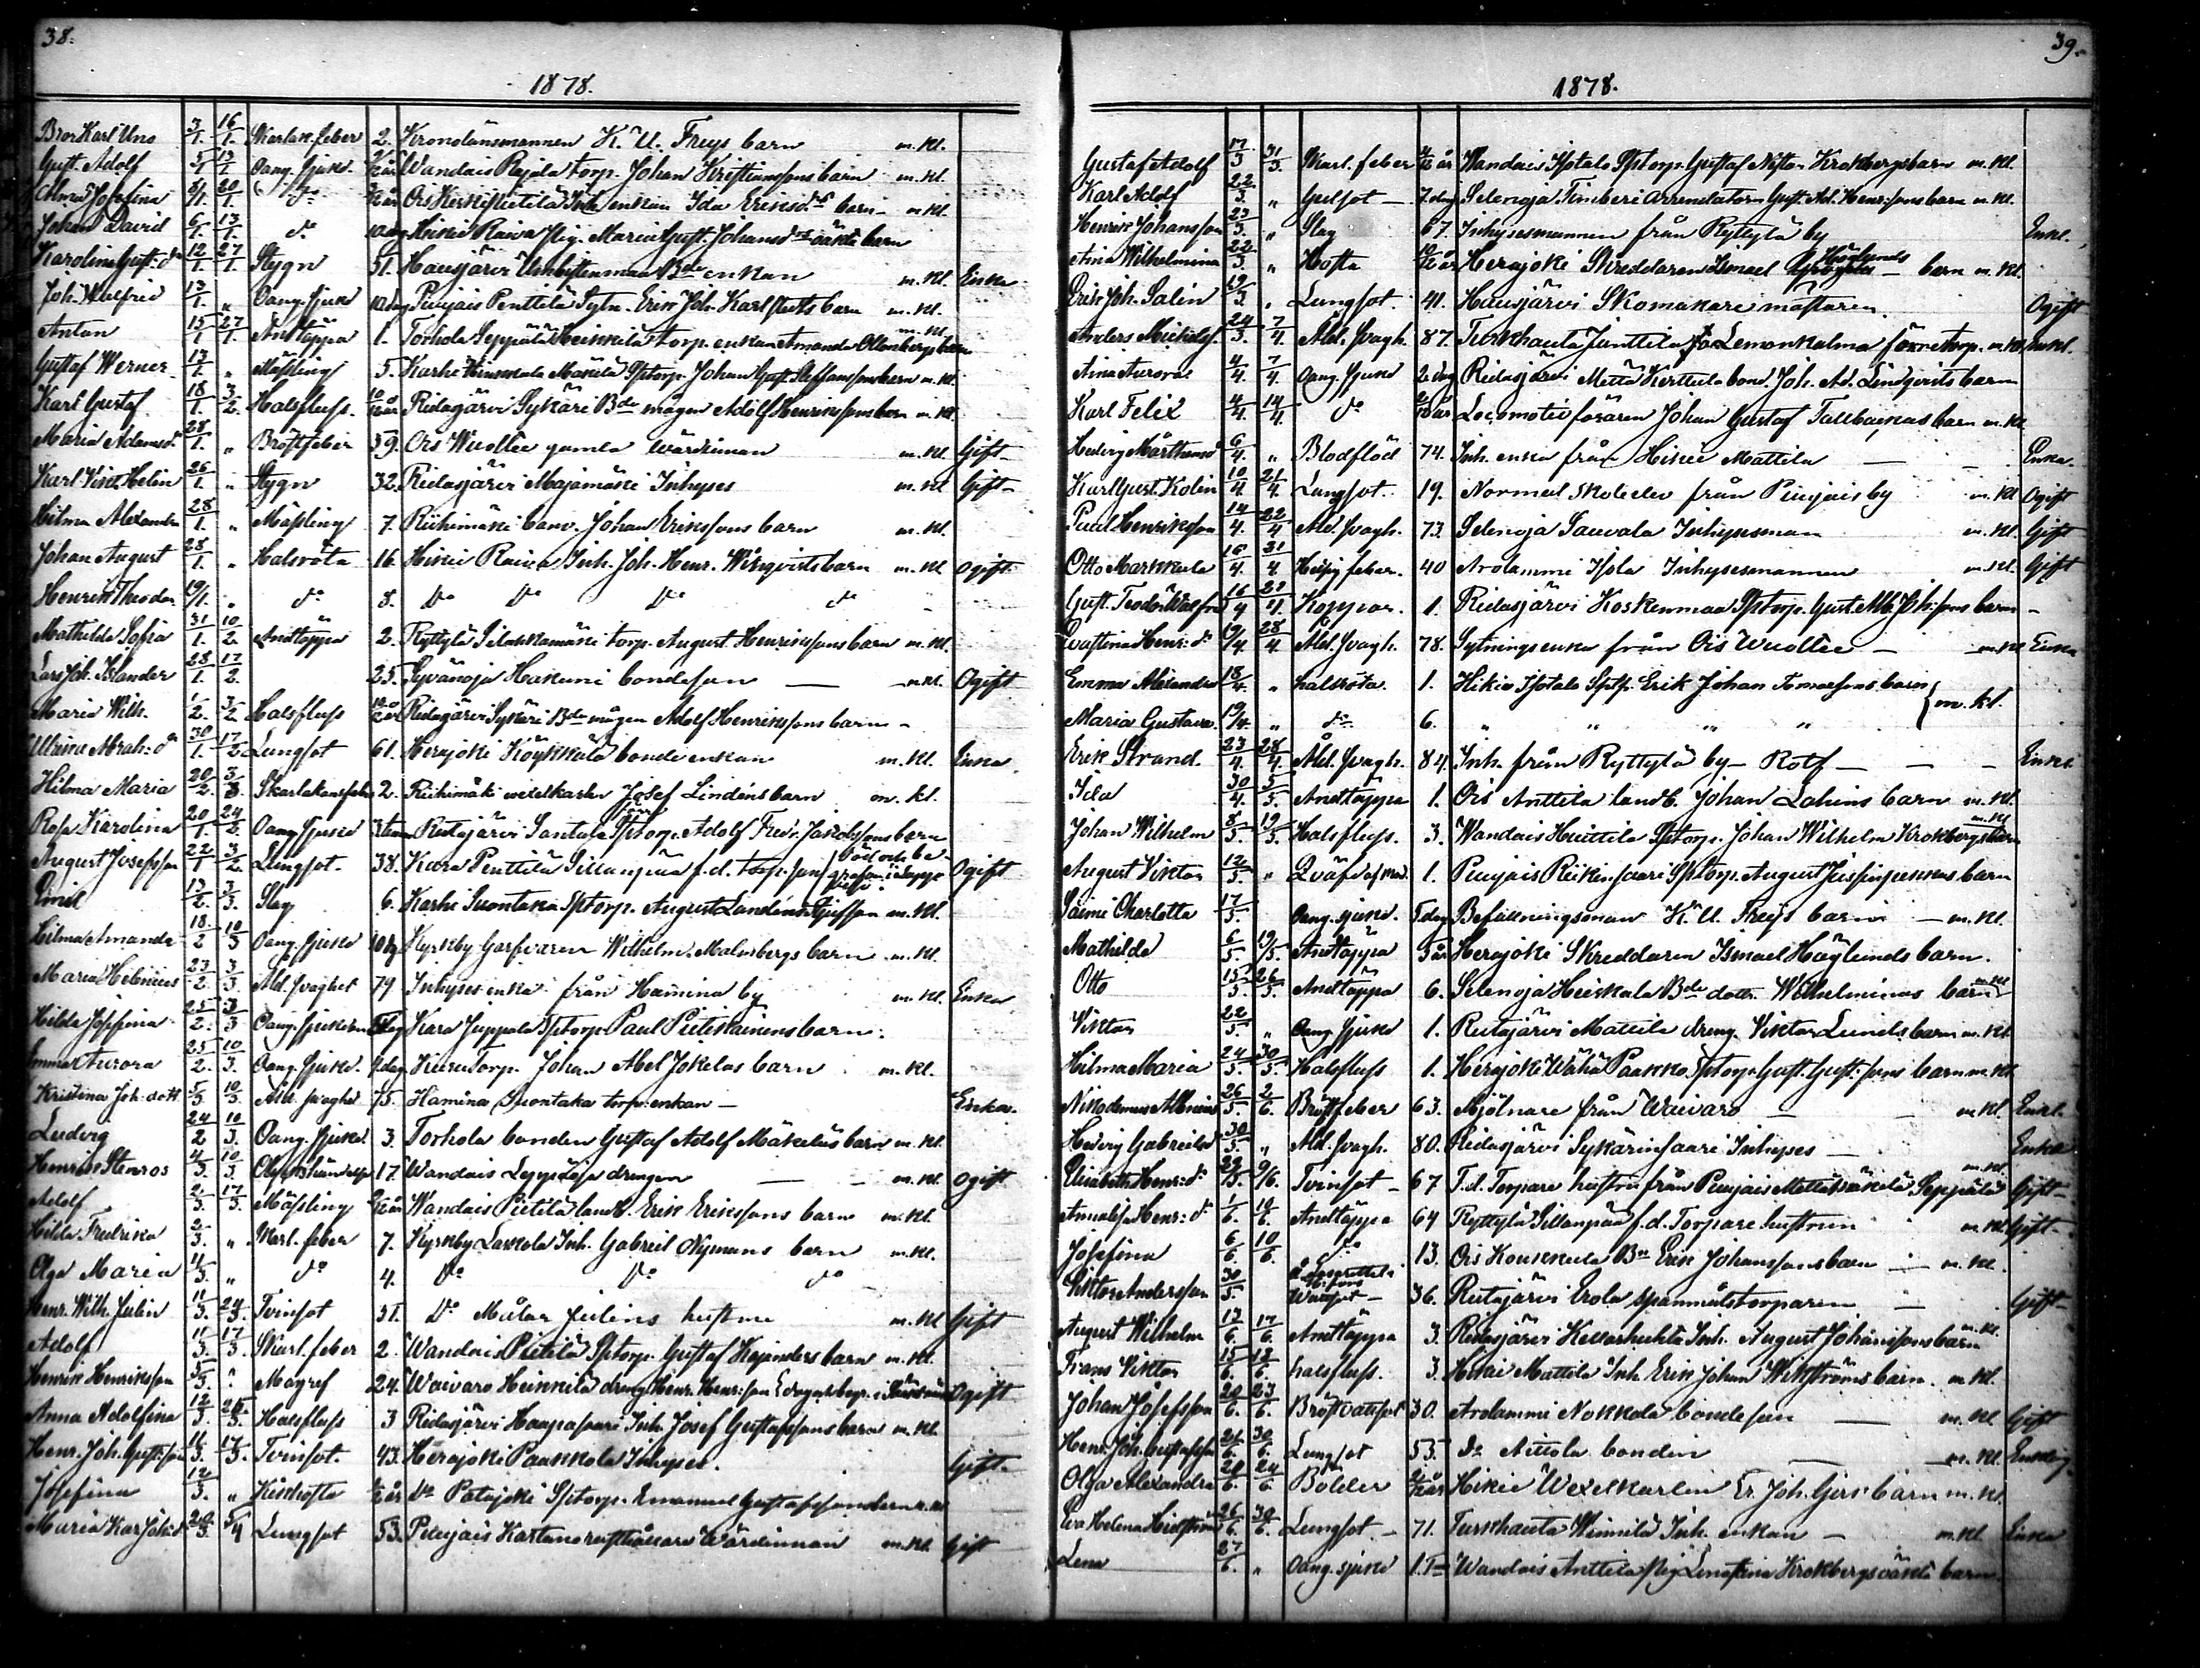 38.
1878.
Bror Karl Uno 3/1. 16/1. Skarlak. feber 2. Kronolänsmannen K. U. Freys barn m. kl.
Gust. Adolf 5/1 13/1. Oang. sjukd. Wandais Rajala torp. Johan Kristianssons barn m. kl.
Alma Josefina 8/1. 20/1. do Ois Kerkisuetilä Inh. enkan Ida Eriksds barn m kl.
Johan David 6/1. 13/1. do 10 dag Hikiä Raiva pig. Maria Gust. Johansds oäkta barn
Karolina Gust:dr 12/1. 27/1. Stygn 51. Hausjärvi Bde enkan m. kl. Enka
Joh. Walfrid 13/1. " Oang. sjukd 10 dag Puujais Penttilä Sytn. Erik Joh. Karlstedts barn m. kl.
Anton 15/1 27/1. Andtäppa 1. Torhola Seppälä Heikkilä torp. enkan Amanda Ollenbergs barn m. kl.
Gustaf Werner 17/1. " Mässling 5. Karhi Heinkkala Mäkilä Sptorp. Johan Gust. Steffanssons barn m. kl.
Karl Gustaf 18/1. 3/2. Halsfluss. 10/12 år Ridasjärvi Sykäri Bde mågen Adolf Henrikssons barn m. kl.
Maria Adamsdr 28/1. " Bröstfeber 59. Ois Wuolle gamla wärdinnan m. kl Gift
Karl Vikt. Helin 26/1. " Stygn 32. Ridasjärvi Majamäki Inhyses m. kl Gift
Hilma Alexandra 28/1. " Mässling 7. Riihimäki banv. Johan Erikssons barn m. kl.
Johan August 28/1. " Halsröta 16. Hikiä Raiva Inh. Joh. Henr. Wikqvists barn m. kl Ogift.
Henrik Theodor 19/1. " do 8. Do Do Do do
Mathilda Sofia 31/1. 10/2. Andtäppa 2. Ryttylä Pilakkamäki torp. August Henrikssons barn m. kl.
Lars Joh. Islander 28/1. 17/2. 25. Syvänoja Hakuni bondeson m. kl. Ogift
Maria Wilh. 1/2. 3/2. Halsfluss 10/12 år Ridasjärvi Sykäri Bde mågen Adolf Henrikssons barn
Ulrika Abrah:dr 30/1. 17/2 Lungsot 61. Herajoki Köykkälä bondeenkan m. kl. Enka
Hilma Maria 20/2. 3/3. Skarlakansfeber 2. Riihimäki wexelkarlen Josef Lindéns barn m. kl.
Rosa Karolina 20/1. 24/2. Oang sjukd Ridasjärvi Santala Sptorp. Adolf Fredr. Jakobssons barn
August Josefsson 22/1 3/2. Lungsot. 38. Kara Penttilä Sillanpää f.d. torp. son Ogift
Emil 13/2. 3/3. Slag 6. Karhi Suontaka Sptorp. August Landéns styfson m. kl.
Hilma Amanda 18/2 10/3 Oang. sjukd Kyrkby Garfvaren Wilhelm Malmbergs barn m. kl.
Maria Helenius 23/2. 3/3. Ald. svaghet 79 Inhyses enka från Hamina by m. kl. Enka
Hilda Josefina 25/2. 3/3 Oang. sjukdom Kara Juppala Sptorp. Paul Pietikäinens barn.
Emma Aurora 25/2. 10/3. Oang. sjukd. Kuru torp. Johan Abel Jokelas barn m. kl.
Kristina Joh. dott. 5/3 10/3. Ald. svaghet 75. Hamina Suontaka torp. enkan Enka.
Ludvig 24/2 10/3. Oang. sjukd. 3. Torhola bonden Gustaf Adolf Mäkeläs barn m. kl.
Henrik Stenros 4/3. 10/3. Olyckshändelse 17. Wandais Leppälahe drengen m. kl. Ogift
Adolf 2/3. 17/3. Mässling Wandais Pietilä landb. Erik Erikssons barn m. kl.
Hilda Fredrika 2/3. " Skarl. feber 7. Kyrkby Laskola Inh. Gabriel Nymans barn m. kl.
Olga Maria 11/3. " do 4. Do Do do
Henr. Wilh. Julin 11/3. 24/3. Tvinsot 31. Do Målar Julins hustru m. kl Gift
Adolf 11/3 17/3. Skarl. feber 2. Wandais Pietilä Sptorp. Gustaf Kajanders barn m. kl.
Henrik Henriksson 5/3. " Magref 24. Waivaro Heikkilä dreng Henr. Henr:son Ogift
Anna Adolfina 12/3. 26/3. Halsfluss 3 Ridasjärvi Haapasaari Inh. Josef Gustafssons barn m. kl.
Henr. Joh. Gust:son 11/3. 17/3. Tvinsot. 43. Herajoki Paakkola Inhyses. Gift.
Josefina 12/3. " Kikhosta Do Patajoki Sptorp. Emanuel Gustafssons barn m. kl
Maria Kar. Johd. 20/3. 5/4 Lungsot 53. Puujais Kartano rusthållare Wärdinnan m. kl. Gift
39.
1878.
Gustaf Adolf 17/3 31/3. Skarl. feber Wandais Isotalo Sptorp. Gustaf Krokbergs barn m. kl.
Karl Adolf 22/3. " Gulsot 7. dag Selenoja Timberi arrendatorn Gust. Ad. Henr:sons barn m. kl.
Henrik Johansson 23/3. " Slag 67. Inhysesmannen från Ryttylä by Enkl.
Aina Wilhelmina 22/3. " Hosta Herajoki Skreddaren Ismael Häglunds barn m. kl.
Erik Joh. Salin 19/3. " Lungsot. 41. Hausjärvi Skomakare mästaren. Ogift
Anders Mickels. 24/3. 7/4. Åld. svagh. 87. Turkhauta Junttila Lemonkulma förre torp. m. kl Enkl.
Aina Aurora 4/4. 7/4. Oang. sjukd 2 dag Ridasjärvi Mattila Kerttula bond. Joh. Ad. Lindqvists barn
Karl Felix 4/4. 14/4. do Locomotivföraren Johan Gustaf Tallbackas barn m. kl
Hedvig Mårthensd 6/4. " Blodflöd 74. Inh. enka från Hikiä Mattila Enka.
Karl Gust. Kolin 10/4. 21/4. Lungsot. 19. Normal skolelev från Puujais by m. kl Ogift
Paul Henriksson 14/4. 22/4 Åld. svagh. 73. Selenoja Sauvala Inhysesman m. kl. Gift
Otto Markkula 16/4. 31/4 Hetsig feber. 40 Arolammi Isola Inhysesmannen m. kl. Gift
Gust. Teodor Walfrid 16/4 22/4. Koppor. 1. Ridasjärvi Koskenmaa Sptorp. Gust. Alb. Joh:sons barn
Evastina Henr:dr 19/4 28/4 Åld. svagh. 78. Sytningsenka från Ois Wuolle m. kl Enka
Emma Alexandra 18/4. " halsröta. 1. Hikiä Isotalo Sptp. Erik Johan Tomassons barn } m. kl.
Maria Gustava. 19/4. " do 6. " " " "
Erik Strand. 23/4. 28/4 Åld. svagh. 84. Inh. från Ryttylä by Rolf Enkl.
Ida 30/4. 5/5. Andtäppa 1. Ois Anttila landb. Johan Lahins barn m. kl.
Johan Wilhelm 8/5. 19/5. Halsfluss. 3. Wandais Huttila Sptorp. Johan Wilhelm Krokbergs barn m. kl
August Viktor 12/5. " Qväfd af mod. 1. Puujais Riikinsaari Sptorp. August barn
Saimi Charlotta 17/5. Oang. sjukd. 5 dag Befallningsman K. U. Freys barn m. kl.
Mathilda 6/5. 19/5. Andtäppa 5 år Herajoki Skreddaren Ismael Häglunds barn.
Otto 15/5. 26/5. Andtäppa 6. Selenoja Heiskala Bde dott. Wilhelminas barn m. kl
Viktor 22/5. " Oang sjukd 1. Ridasjärvi Mattila dreng. Viktor Lunds barn m. kl
Hilma Maria 24/5. 30/5. Halsfluss 1. Herajoki Wähä Paakko Sptorp. Gust. Gust:sons barn m. kl
Nikodemus Allenius 26/5. 2/6. Bröstfeber 63. Mjölnare från Waivaro m. kl. Enkl.
Hedvig Gabrielsd 30/5. " Åld. svagh. 80. Ridasjärvi Sykärinsaari Inhyses Enka
Elisabeth Henr:dr 29/5. 9/6. Tvinsot 67 F.d. Torpare hustru från Puujais Seppälä m. kl. Gift
Annalisa Henr:dr 1/6. 16/6. Andtäppa 64 Ryttylä Sillanpää f.d. Torpare hustrun m. kl. Gift
Josefina 6/6. 10/6. do 13. Ois Koukkula Bn Erik Johanssons barn m. kl.
Viktor Andersson 30/5. 36. Ridasjärvi Erola spanmålstorparen Gift
August Wilhelm 13/6. 17/6. Andtäppa 3. Ridasjärvi Kellarhuhta Inh. August Johanssons barn m. kl.
Frans Viktor 15/6. 18/6. halsfluss. 3. Hikiä Mattila Inh. Erik Johan Wikströms barn. m kl.
Johan Josefsson 20/6. 23/6. Bröstvattsot 30. Arolammi Nokkola bondeson m. kl Gift
Henr. Joh. Gustafsson 21/6. 30/6. Lungsot 53. Do Aittola bonden m. kl. Enkling
Olga Alexandra 20/6. 24/6. Bölder Hikiä Wexelkarlen Er. Joh. Girs barn m. kl.
Eva Helena Hedström 26/6. 30/6. Lungsot 71. Turkhauta Ninnilä Inh. enkan m. kl. Enka
Lena 27/6. " Oang. sjukd Wandais Anttila pig Lenastina Krokbergs oäkta barn.